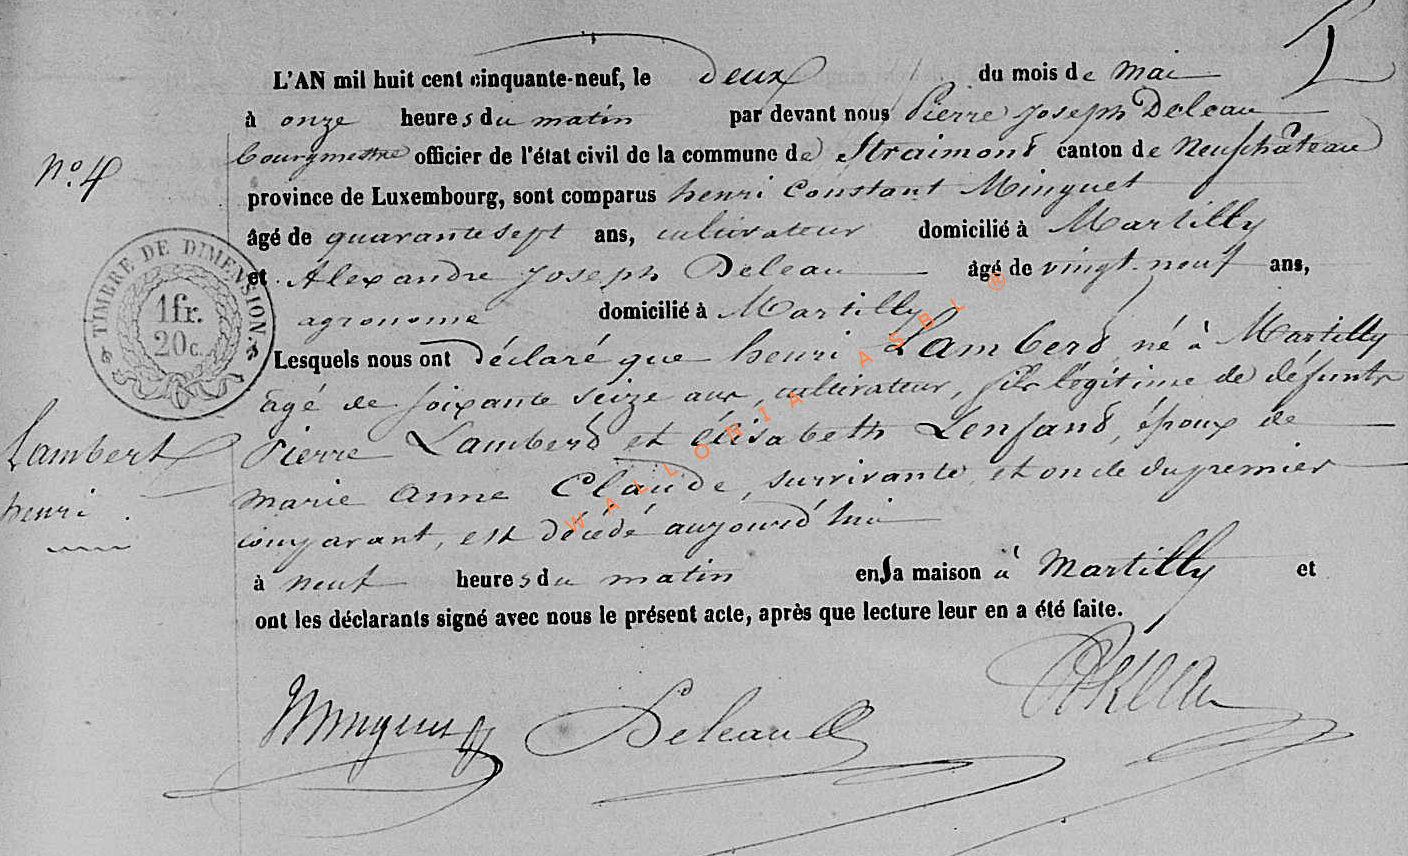 L'AN mil huit cent cinquante-neuf, le deux du mois de Mai
à onze heures du matin par devant nous Pierre Joseph Deleau
N.o 4
bourgmestre officier de l'état civil de la commune de Straimont canton de Neufchâteau
province de Luxembourg, sont comparus henri Constant Minguet
âgé de quarante sept ans, cultivateur domicilié à Martilly
et Alexandre Joseph Deleau âgé de vingt-neuf ans,
agronome domicilié à Martilly
TIMBRE DE DIMENSION.
1fr.
20c.
Lesquels nous ont déclaré que henri Lambert, né à Martilly
âgé de soixante seize ans, cultivateur, fils légitime de défunts
Pierre Lambert et élisabeth Lenfant, époux de
Lambert
henri
marie anne Claude, survivante, et oncle du premier
comparant, est décédé aujourd'hui
à neuf heures du matin en sa maison à Martilly et
ont les déclarants signé avec nous le présent acte, après que lecture leur en a été faite.
Minguet Deleau
WALLORIA ASBL ®